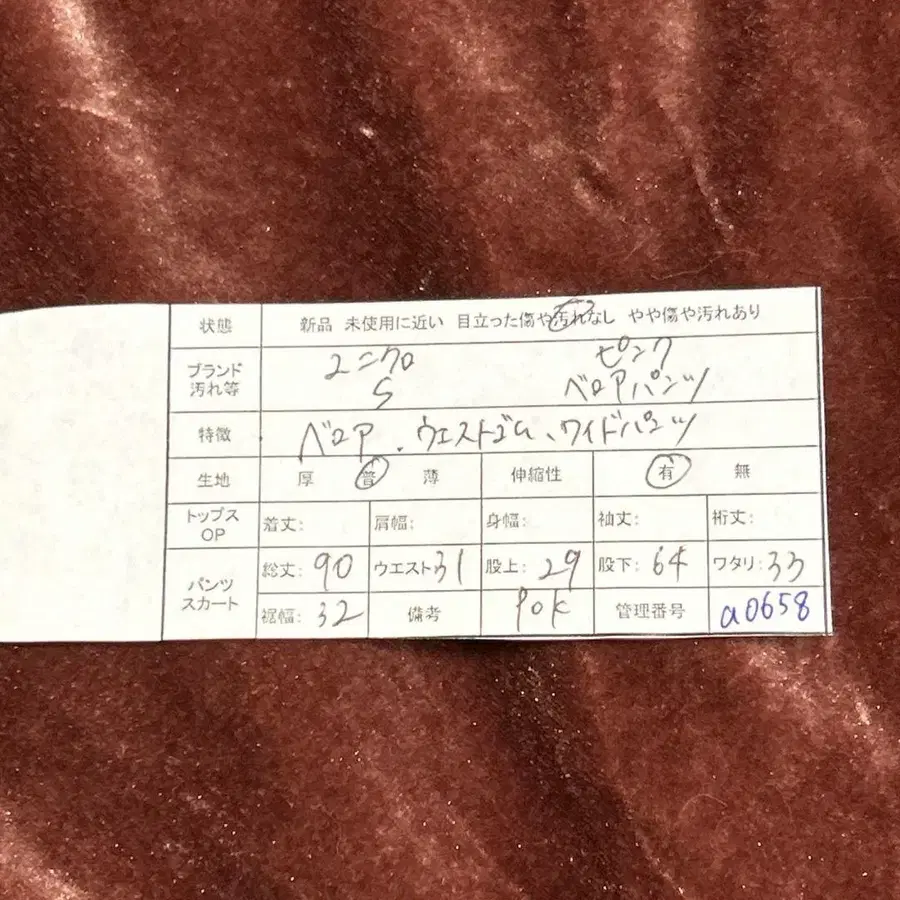 状態 新品 未使用に近い 目立った傷や汚れなし やや傷や汚れあり
ブランド 汚れ等 ユニクロ S ピンク ベロアパンツ
特徴 ベロア、ウエストゴム、ワイドパンツ
生地 厚 普 薄 伸縮性 有 無
トップス OP 着丈: 肩幅: 身幅: 袖丈: 裄丈:
パンツ スカート 総丈: 90 ウエスト31 股上: 29 股下: 64 ワタリ: 33
裾幅: 32 備考 Pok 管理番号 a0658